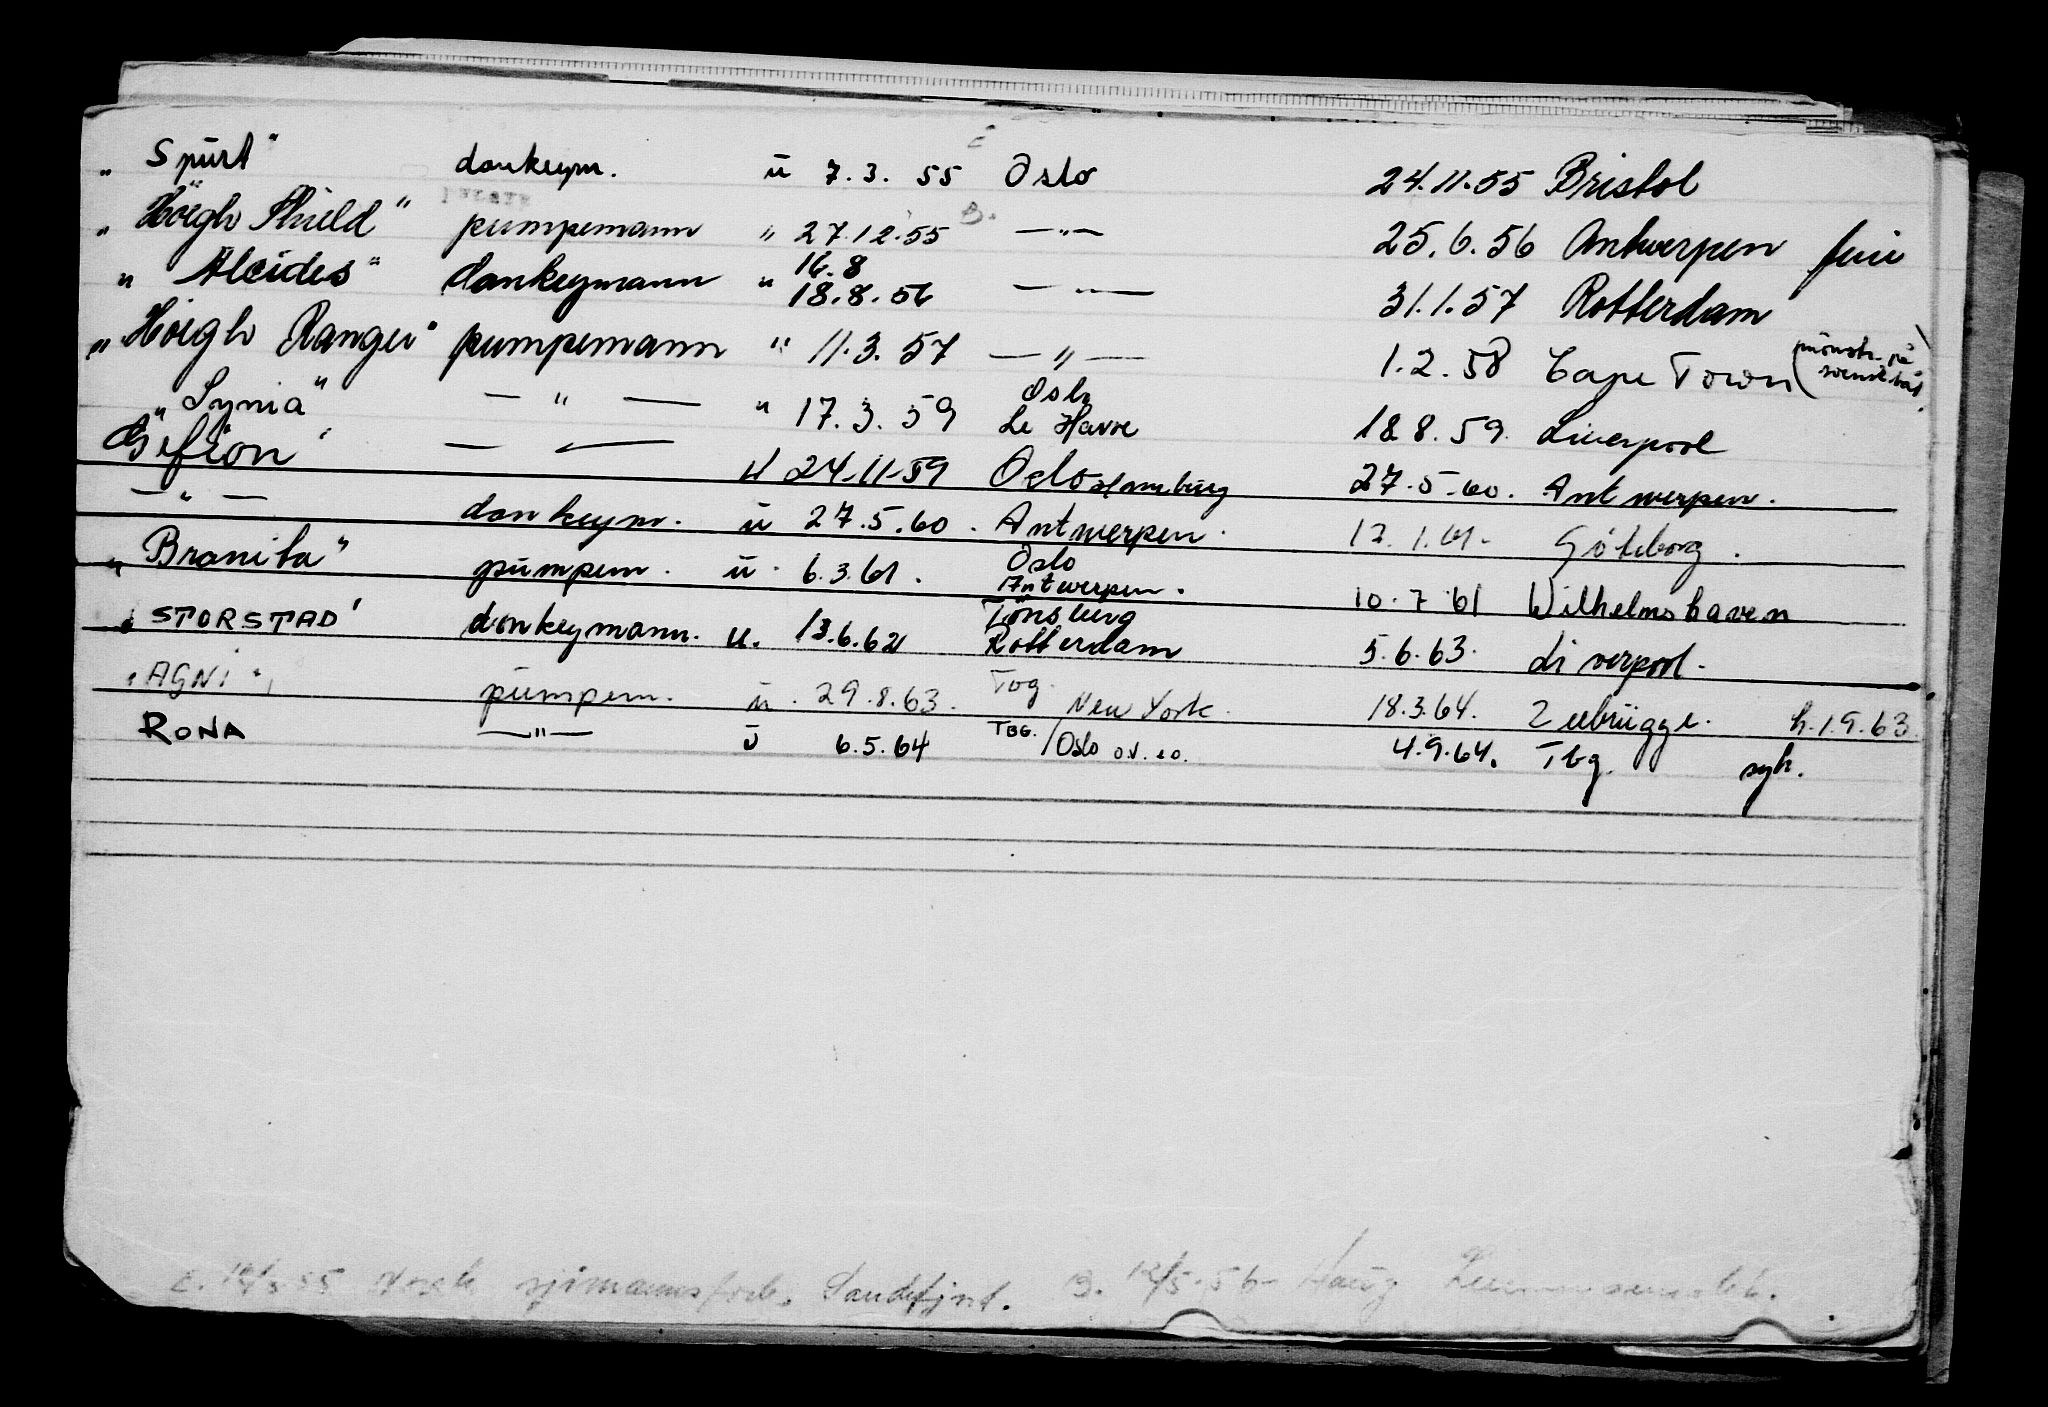 „ Spurt“ donkeym. u 7.3.55 Oslo 24.11.55 Bristol
„ Höegh Shield“ pumpemann „ 27.12.55 B. —„— 25.6.56 Antwerpen ferie
„ Alcides“ donkeymann „ 16.8 18.8.56 —„— 31.1.57 Rotterdam
„ Höegh Ranger“ pumpemann „ 11.3.57 —„— 1.2.58 Cape Town (mönstr. på svensk båt)
„ Synia“ —„— „ 17.3.59 Oslo Le Havre 18.8.59 Liverpool
Gefion“ —„— u 24.11.59 Oslo Hamburg 27.5.60. Antwerpen.
—„— donkeym. u 27.5.60. Antwerpen. 12.1.61. Göteborg.
„ Bronita“ pumpem. u. 6.3.61. Oslo Antwerpen. 10.7.61 Wilhelmshaven
„ STORSTAD' donkeymann. u. 13.6.62 Tönsberg Rotterdam 5.6.63. Liverpool.
„ AGNI“ pumpem. u. 29.8.63. Tbg. New York. 18.3.64. Zeebrügge. h.1.9.63
RONA —„— u 6.5.64 TBG. /Oslo o.v. 4.9.64. Tbg. syk.
E. 12/3 55 Norsk sjömannsforb. Sandefjord. B. 12/5-56 Haug